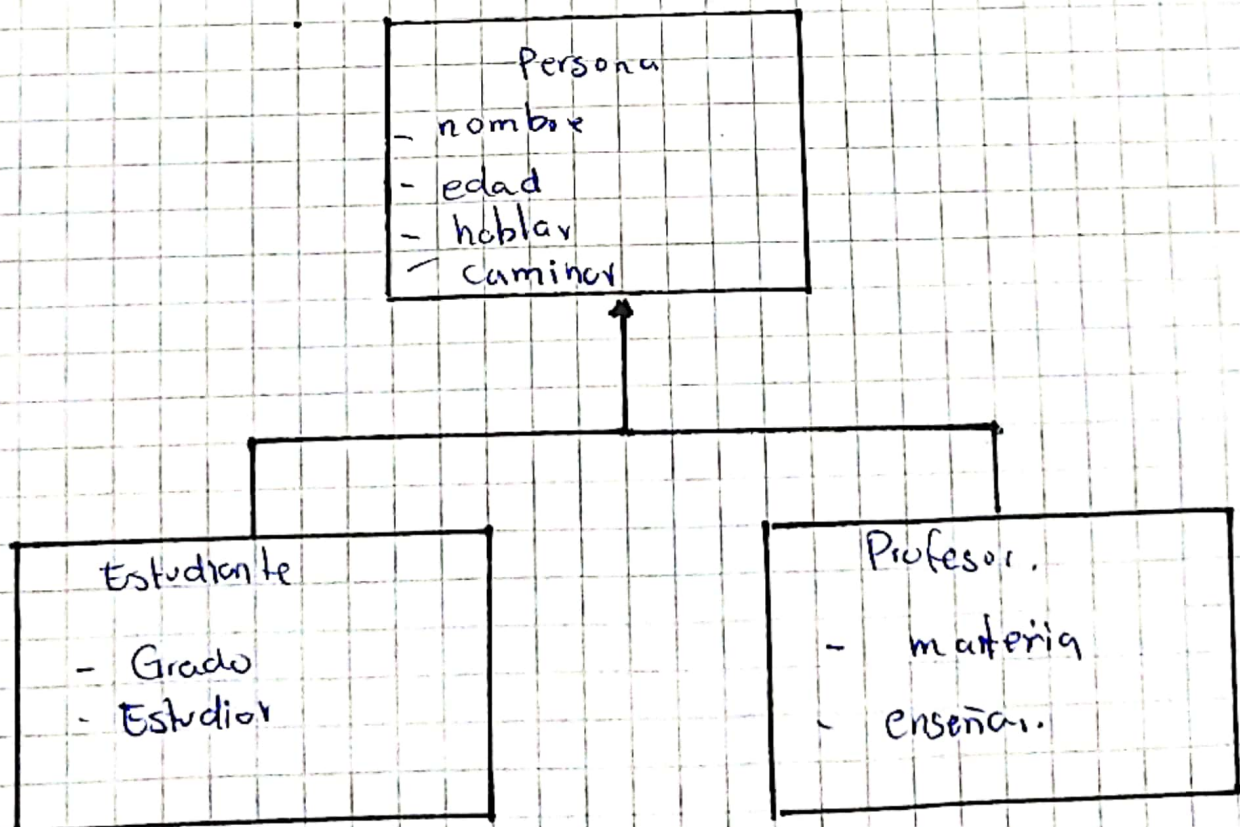 Persona
- nombre
- edad
- hablar
- caminar
Estudiante
- Grado
- Estudiar
Profesor.
- materia
- enseñar.